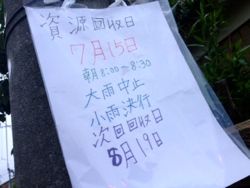 資源回収日
7月15日
朝8:00~8:30
大雨中止
小雨決行
次回回収日
8月19日